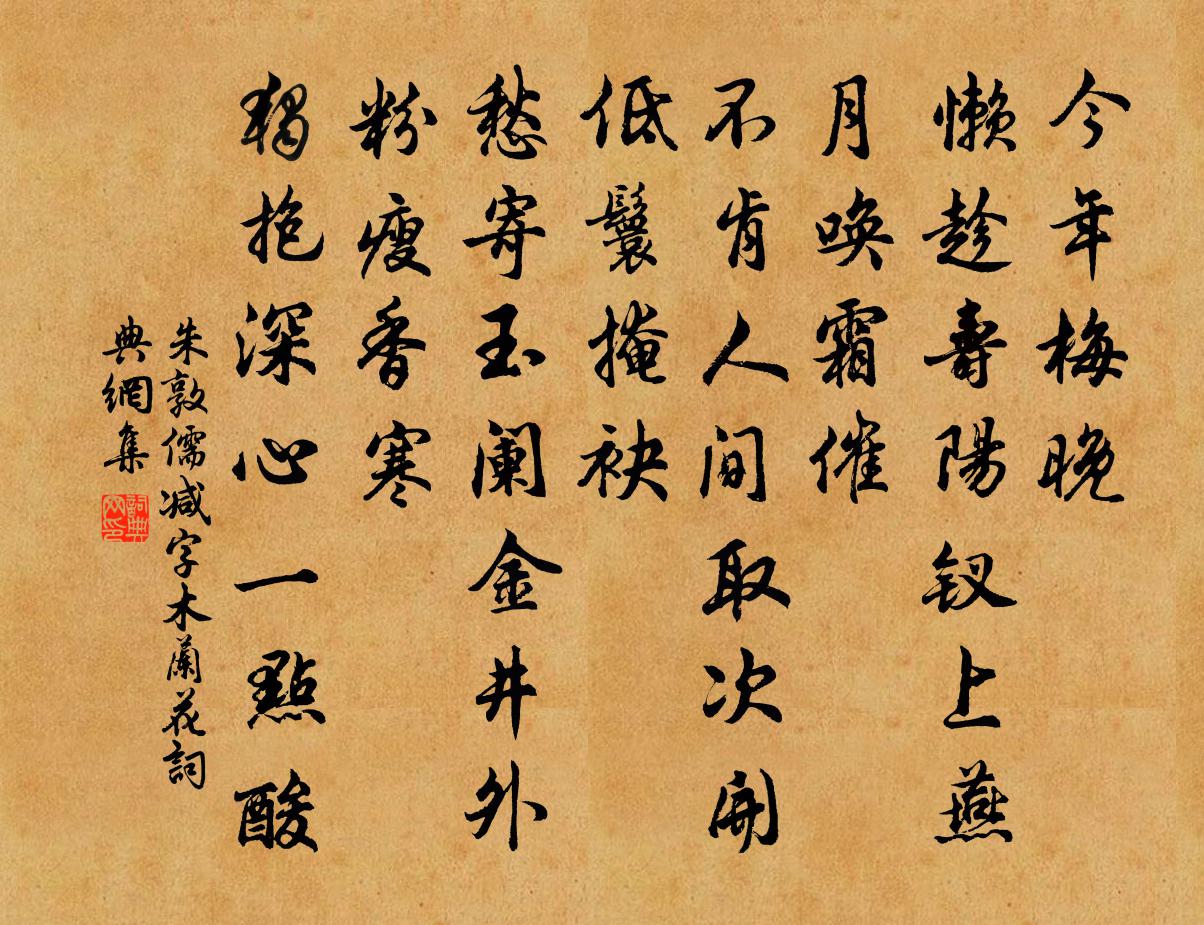 今年梅晚
懶趁壽陽釵上燕
月喚霜催
不肯人间取次開
低鬟掩袂
愁寄玉阑金井外
粉瘦香寒
獨抱深心一點酸
朱敦儒减字木蘭花詞
典網集
詞典网印